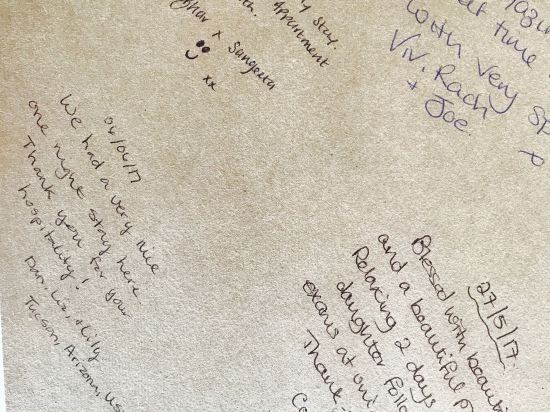 y stay.
appartment
x Sangeeta
xx
at time
with very sp
Viv, Rach
+ Joe.
04/04/17
We had a very nice
one night stay here
Thank you for your
hospitality!
Dan, Liz, + Lily
Tucson, Arizona, US
27/5/17
Blessed with beaut
and a beautiful p
Relaxing 2 days
daughter foll
exams at uni
Thank